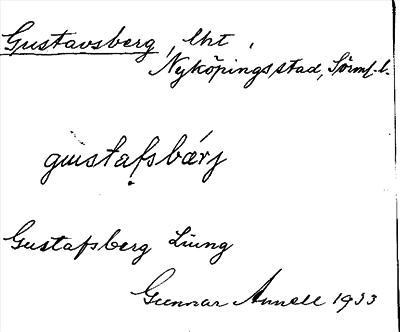 Gustavsberg, lht,
Nyköpings stad, Sörml. l.
gustafsbærj
Gustafsberg Liung
Gunnar Annell 1933